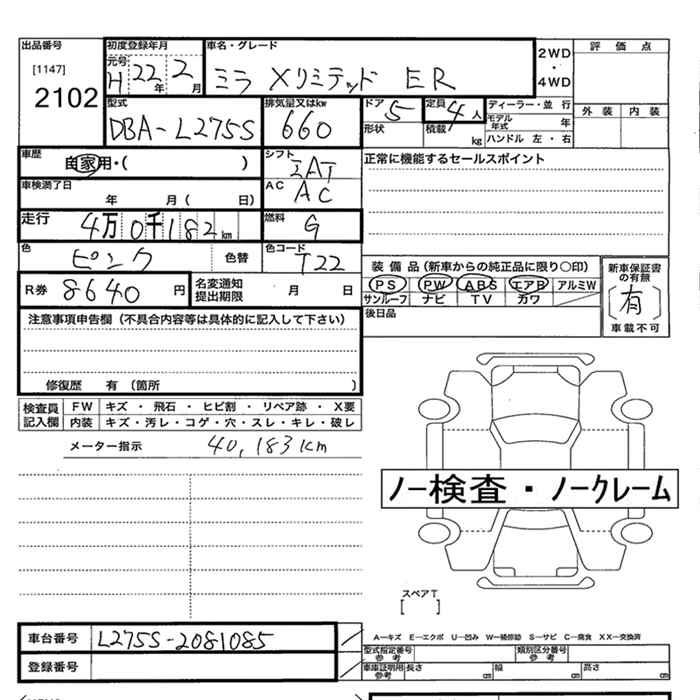 出品番号 初度登録年月 車名・グレード 2WD ・ 4WD 評価点
[1147] 元号 H 22年 2月 ミラ Xリミテッド ER
2102 外装 内装
型式 排気量又はkw ドア 5 定員 4人 ディーラー・並行
DBA-L275S 660 形状 積載 kg モデル年式 年
ハンドル 左・右
車歴 自家用・( ) シフト 正常に機能するセールスポイント
車検満了日 年 月( 日) AC AC
走行 4万0千182km 燃料 G
色 ピンク 色替 色コード T22
装備品(新車からの純正品に限り○印) 新車保証書の有無
PS PW ABS エアB アルミW [有]
サンルーフ ナビ TV カワ 車載不可
R券 8640円 名変通知提出期限 月 日 後日品
注意事項申告欄(不具合内容等は具体的に記入して下さい)
修復歴 有(箇所 )
検査員記入欄 FW キズ・飛石・ヒビ割・リペア跡・X要
内装 キズ・汚レ・コゲ・穴・スレ・キレ・破レ
メーター指示 40,183km
ノー検査・ノークレーム
スペアT
[ ]
車台番号 L275S-2081085
A−キズ E−エクボ U−凹み W−補修跡 S−サビ C−腐食 XX−交換済
型式指定番号 参考 類別区分番号 参考
登録番号 車庫証明用 参考 長さ cm 幅 cm 高さ cm